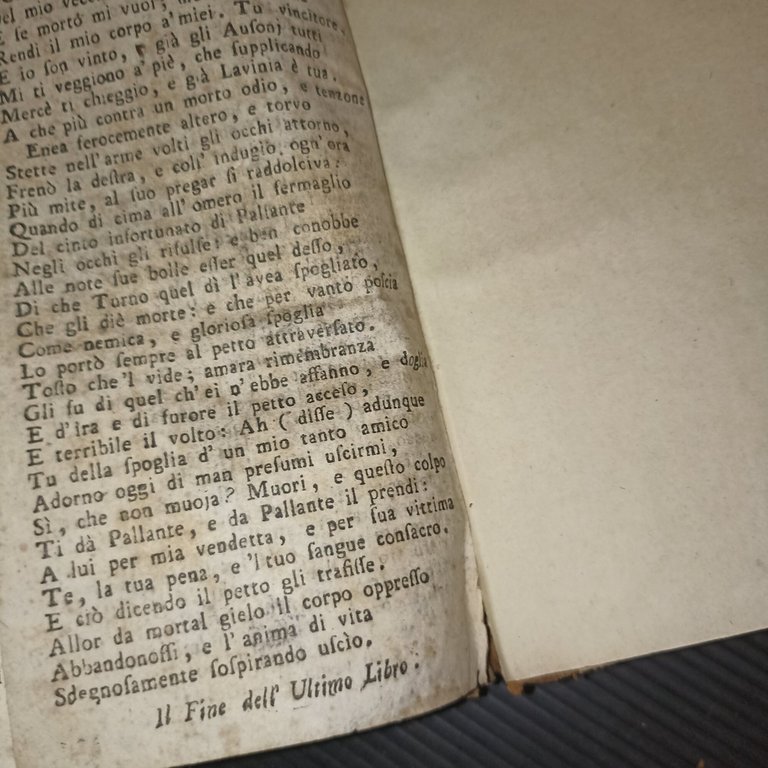 del mio
E se morto mi vuoi,
Rendi il mio corpo a' miei. Tu vincitore,
E io ſon vinto, e già gli Auſonj tutti
Mi ti veggiono a' piè, che ſupplicando
Mercè ti chieggio, e già Lavinia è tua.
A che più contra un morto odio, e tenzone
Enea ferocemente altero, e torvo
Stette nell'arme volti gli occhi attorno,
Frenò la deſtra, e coll' indugio, ogn'ora
Più mite, al ſuo pregar ſi raddolciva:
Quando di cima all' omero il fermaglio
Del cinto infortunato di Pallante
Negli occhi gli rifulſe: e ben conobbe
Alle note ſue bolle eſſer quel deſſo,
Di che Turno quel dì l'avea ſpogliato,
Che gli diè morte: e che per vanto poſcia
Come nemica, e glorioſa ſpoglia
Lo portò ſempre al petto attraverſato.
Toſto che 'l vide; amara rimembranza
Gli fu di quel ch'ei n'ebbe affanno, e doglia
E d'ira e di furore il petto acceſo,
E terribile il volto: Ah (diſſe) adunque
Tu della ſpoglia d' un mio tanto amico
Adorno oggi di man preſumi uſcirmi,
Sì, che non muoja? Muori, e queſto colpo
Ti dà Pallante, e da Pallante il prendi:
A lui per mia vendetta, e per ſua vittima
Te, la tua pena, e 'l tuo ſangue conſacro.
E ciò dicendo il petto gli trafiſſe.
Allor da mortal gielo il corpo oppreſſo
Abbandonoſſi, e l'anima di vita
Sdegnoſamente ſoſpirando uſcìo.
Il Fine dell' Ultimo Libro.